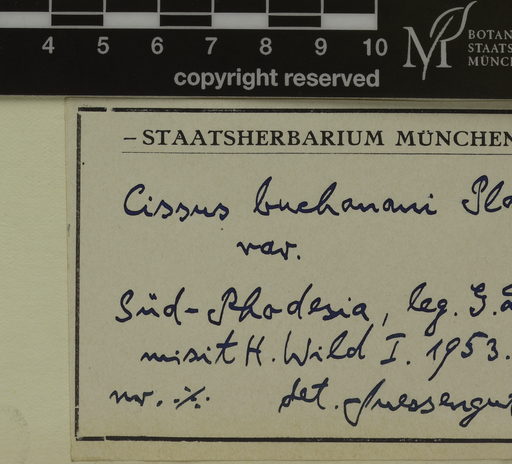 4 5 6 7 8 9 10
copyright reserved
M BOTAN
STAATS
MÜNC
– STAATSHERBARIUM MÜNCHEN
Cissus buchanani Pla
var.
Süd-Rhodesia, leg. G.
misit H. Wild I. 1953.
nr. ·/· det. Suessengut